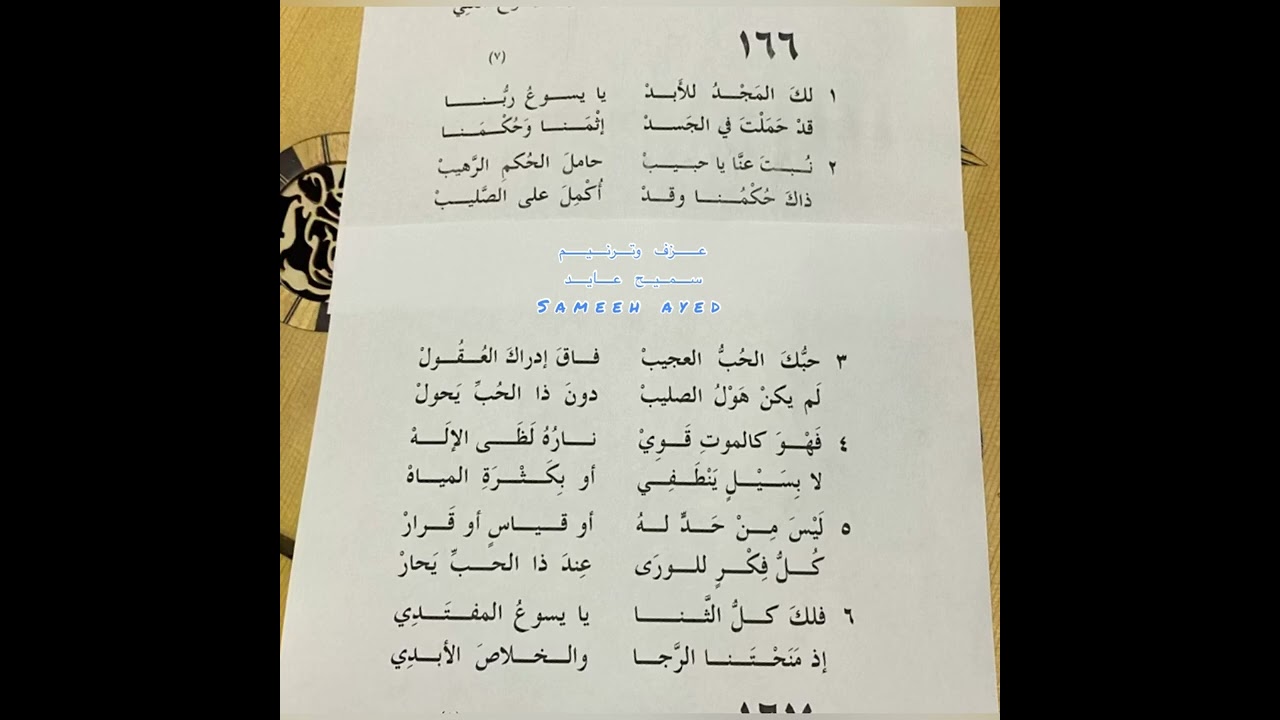 ١٦٦
(٧)
١ لكَ المَجْدُ للأَبدْ يا يسوعُ ربُّنا
قدْ حَمَلْتَ في الجَسدْ إثْمَنا وَحُكْمَنا
٢ نُبتَ عنَّا يا حبيبْ حاملَ الحُكمِ الرَّهيبْ
ذاكَ حُكْمُنا وقدْ أُكْمِلَ على الصَّليبْ
عزف وترنيم
سميح عايد
SAMEEH AYED
٣ حبُّكَ الحُبُّ العجيبْ فاقَ إدراكَ العُقُولْ
لَم يكنْ هَوْلُ الصليبْ دونَ ذا الحُبِّ يَحولْ
٤ فَهْوَ كالموتِ قَوِيْ نارُهُ لَظَى الإلَهْ
لا بِسَيْلٍ يَنْطَفِي أو بِكَثْرَةِ المياهْ
٥ لَيْسَ مِنْ حَدٍّ لهُ أو قياسٍ أو قَرارْ
كُلُّ فِكْرٍ للورَى عِندَ ذا الحبِّ يَحارْ
٦ فلكَ كلُّ الثَّنا يا يسوعُ المفتَدِي
إذ مَنَحْتَنا الرَّجا والخلاصَ الأبدِي